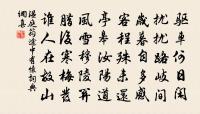 驅車何日閑
擾擾路岐間
歲暮自多感
客程殊未還
亭皋汝陽道
風雪穆陵關
臘後寒梅發
誰人在故山
溫庭筠途中有懷詞典
網喜